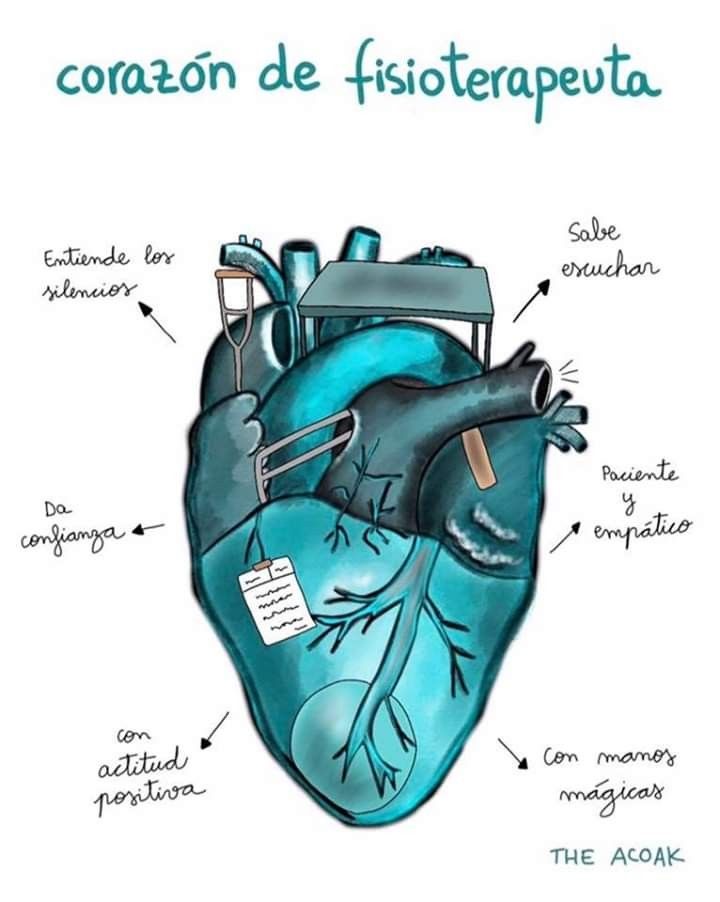 corazón de fisioterapeuta
Entiende los
silencios
Sabe
escuchar
Da
confianza
Paciente
y
empático
con
actitud
positiva
Con manos
mágicas
THE ACOAK